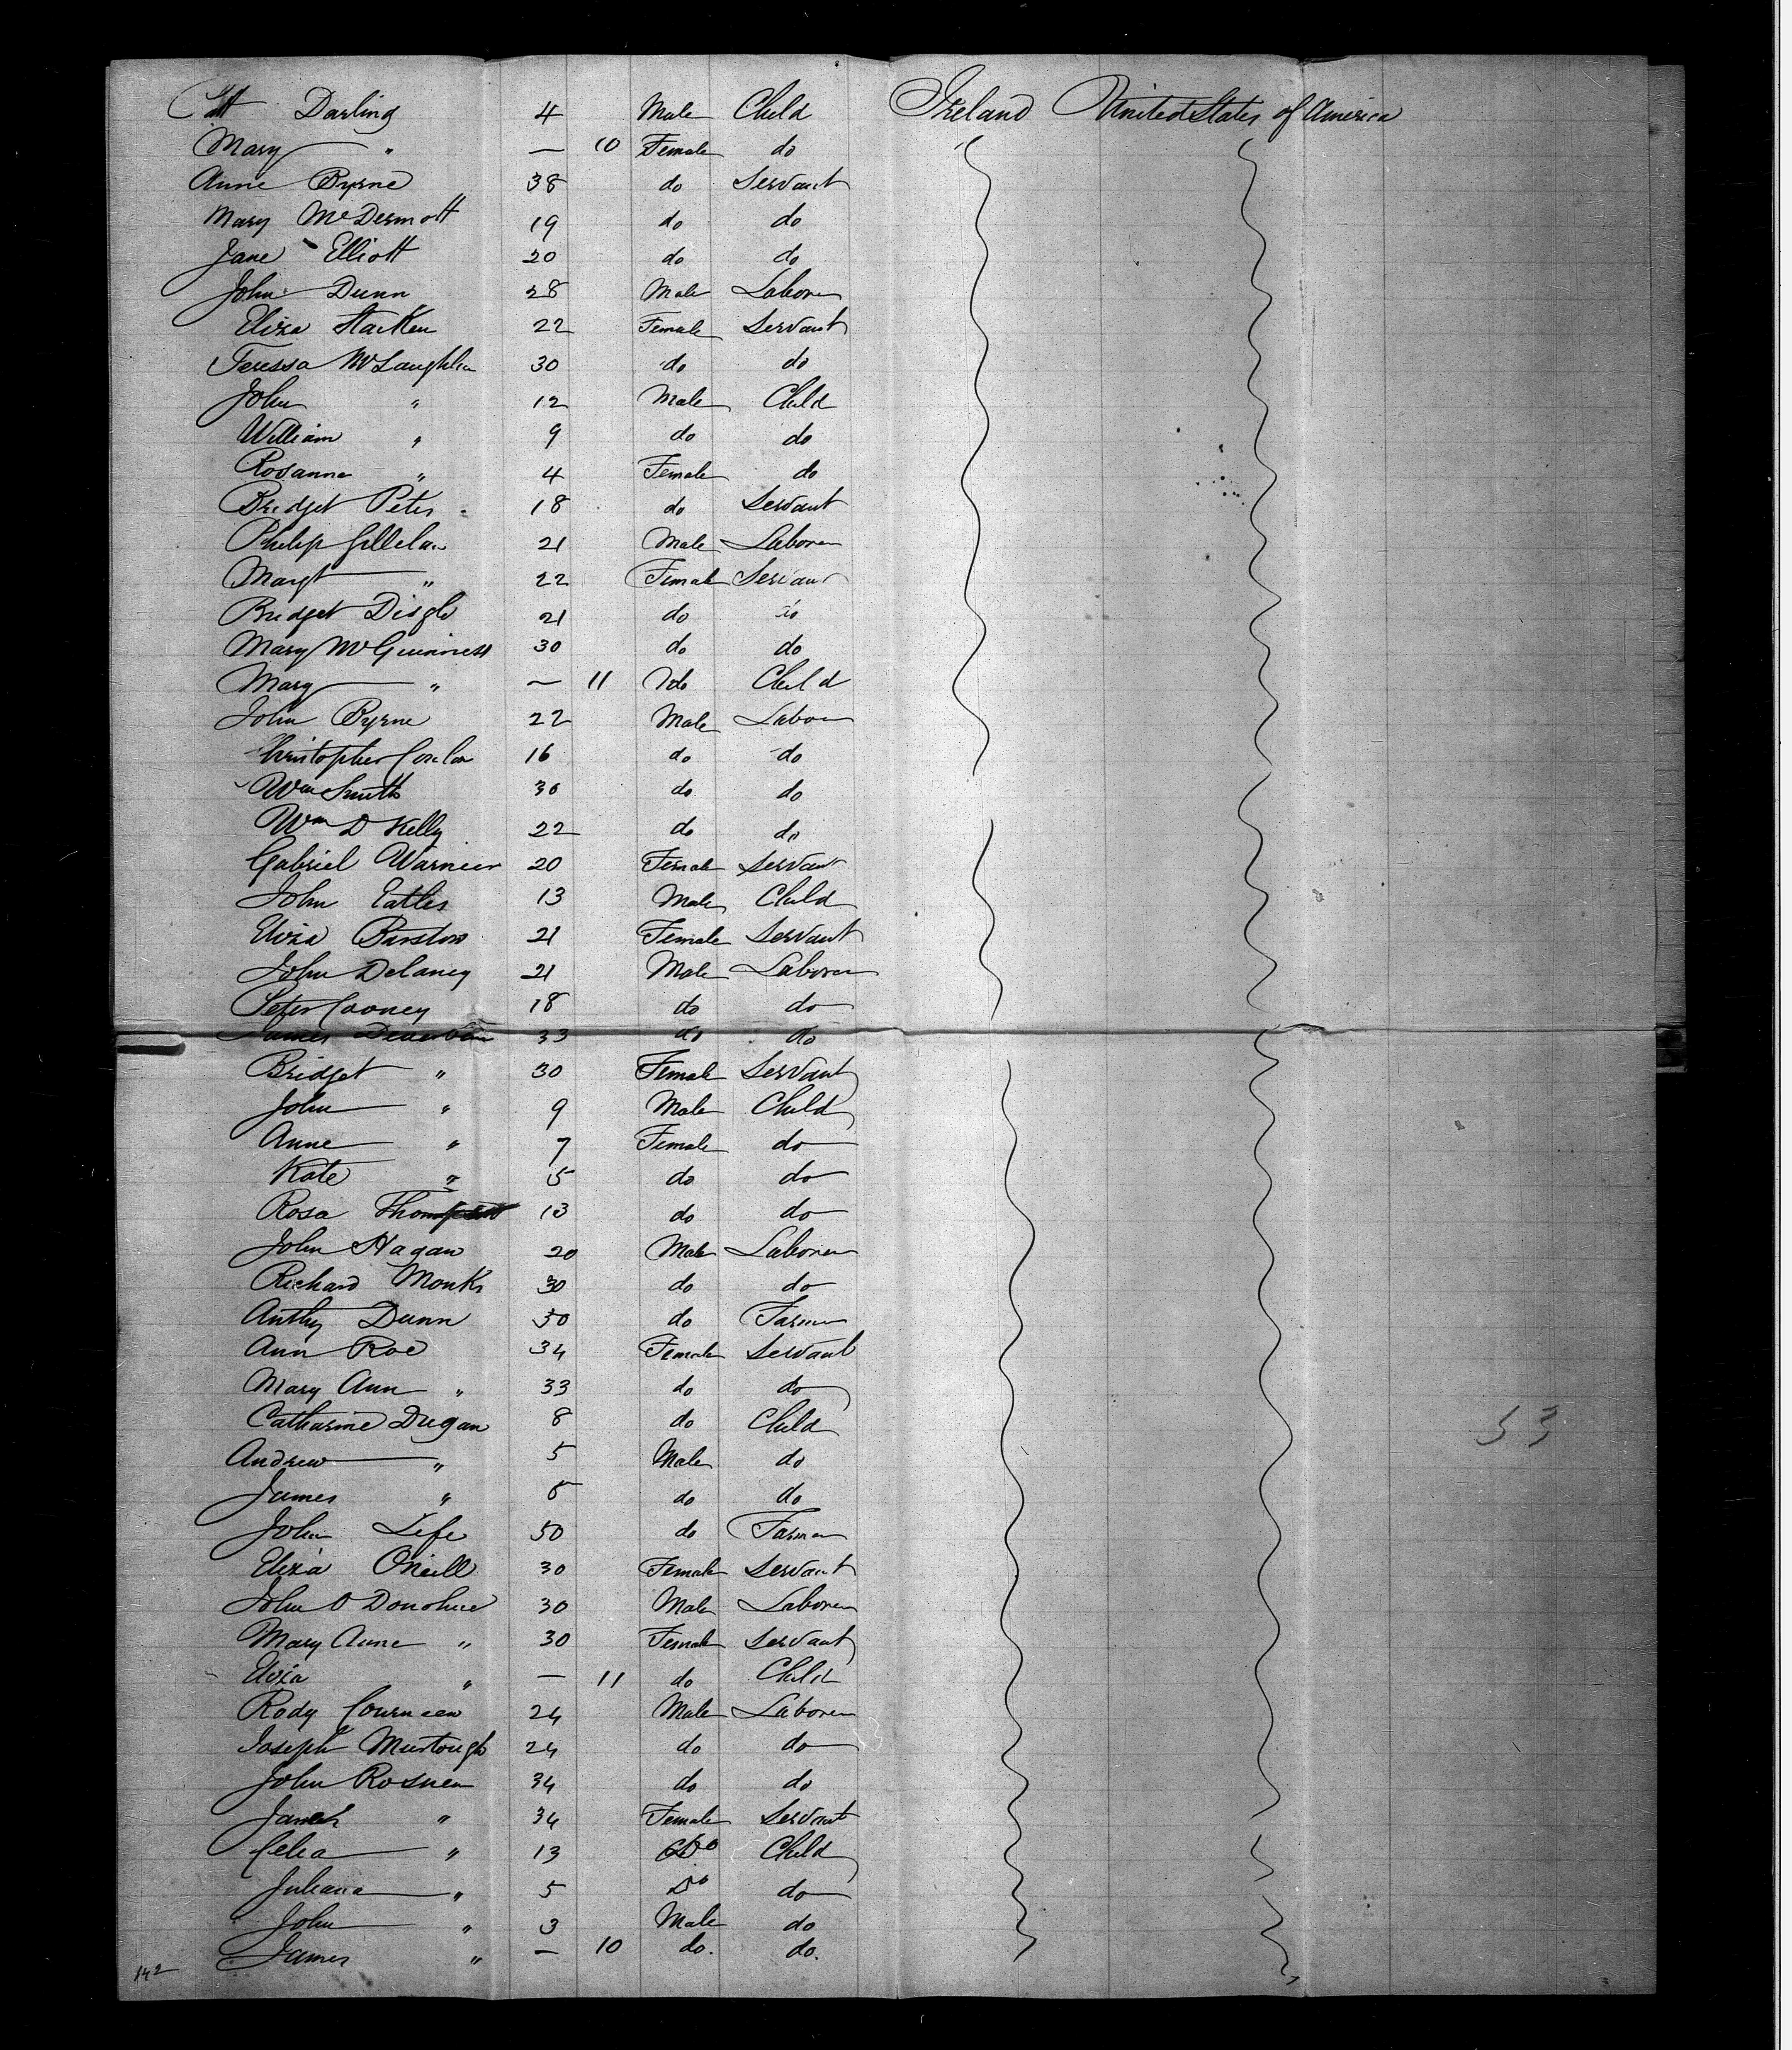 Patt Darling 4 Male Child Ireland United States of America
Mary " — 10 Female do
Anne Byrne 38 do Servant
Mary McDermott 19 do do
Jane Elliott 20 do do
John Dunn 28 Male Laborer
Eliza 22 Female Servant
Teressa McLaughlin 30 do do
John " 12 Male Child
William " 9 do do
Rosanna " 4 Female do
Bridget Peter 18 do Servant
Philip 21 Male Laborer
Margt " 22 Female Servant
Bridget 21 do do
Mary McGuinness 30 do do
Mary " — 11 do Child
John Byrne 22 Male Labor
Christopher 16 do do
Wm Smith 30 do do
Wm D Kelly 22 do do
Gabriel 20 Female Servant
John 13 Male Child
Eliza 21 Female Servant
John Delaney 21 Male Laborer
Peter Cooney 18 do do
James 33 do do
Bridget " 30 Female Servant
John " 9 Male Child
Anne " 7 Female do
Kate " 5 do do
Rosa Thompson 13 do do
John Hagan 20 Male Laborer
Richard Monks 30 do do
Anthy Dunn 50 do Farmer
Ann Roe 34 Female Servant
Mary Ann " 33 do do
Catharine Dugan 8 do Child
Andrew " 5 Male do
James " do do
John 50 do Farmer
Eliza ONeill 30 Female Servant
John O Donohue 30 Male Laborer
Mary Anne " 30 Female Servant
Eliza " — 11 do Child
Rody 24 Male Laborer
Joseph Murtough 24 do do
John 34 do do
" 34 Female Servant
Celia " 13 Do Child
Juliana " 5 Do do
John " 3 Male do
James " — 10 do. do.
53
142